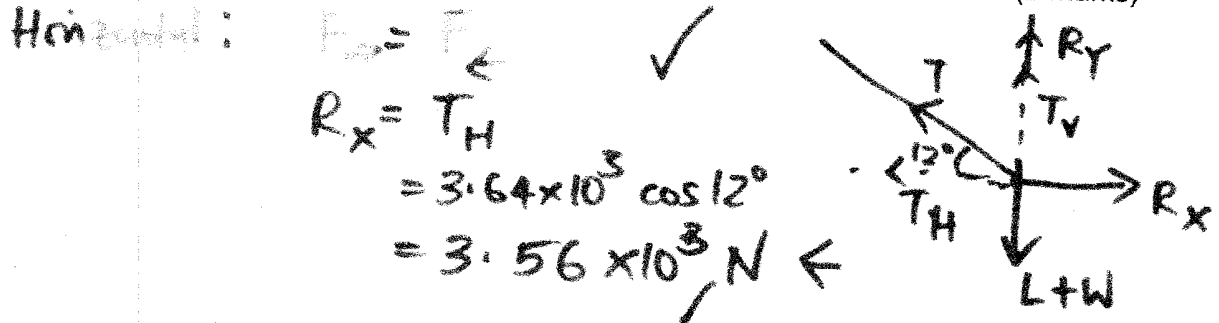 Horizontal : F→ = F←
✓
R_X = T_H
= 3.64 × 10³ cos 12°
= 3.56 × 10³ N ←
R_Y
T
T_V
12°
T_H
R_X
L+W